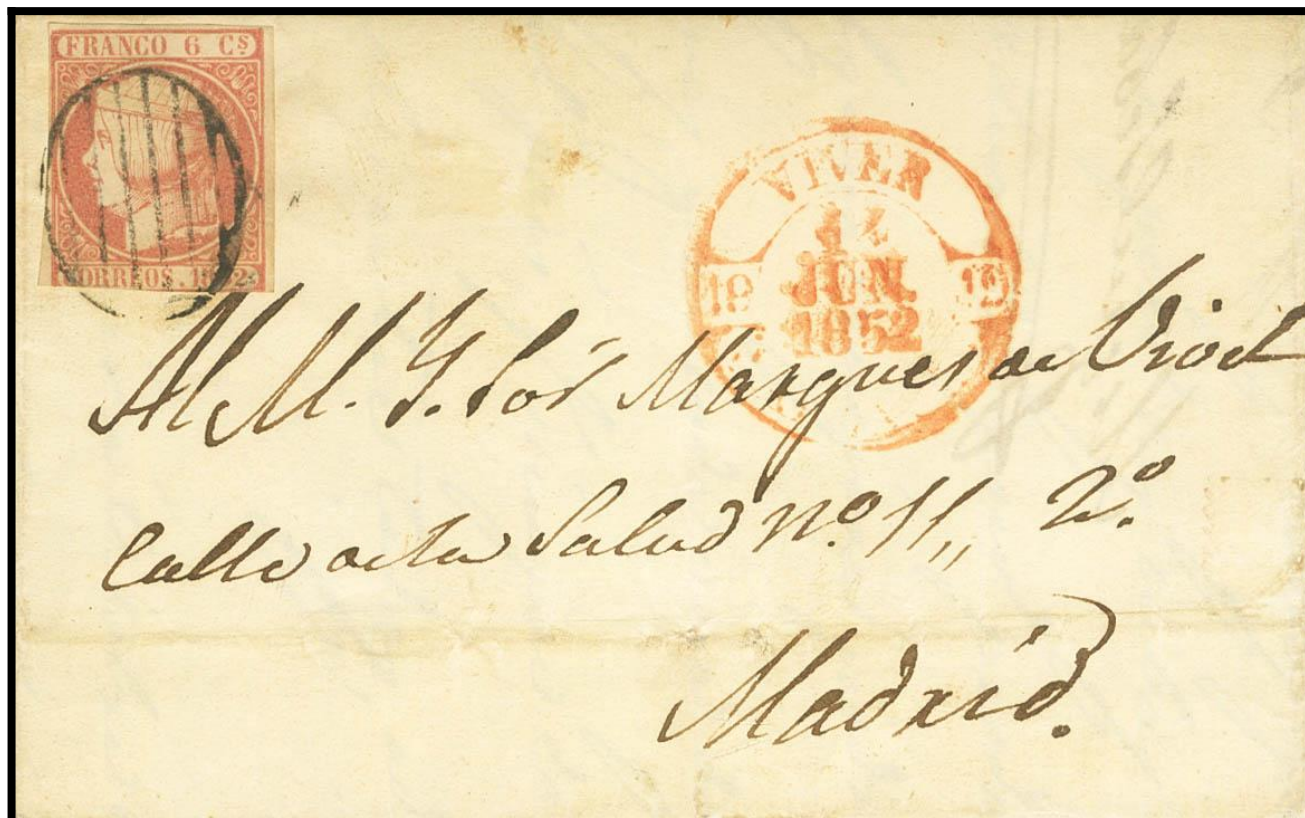 FRANCO 6 Cs
CORREOS. 1852
VIVER
14
JUN.
1852
19
Al M. Y. Sor Marques de
Calle de la Salud nº 11,, 2º
Madrid.